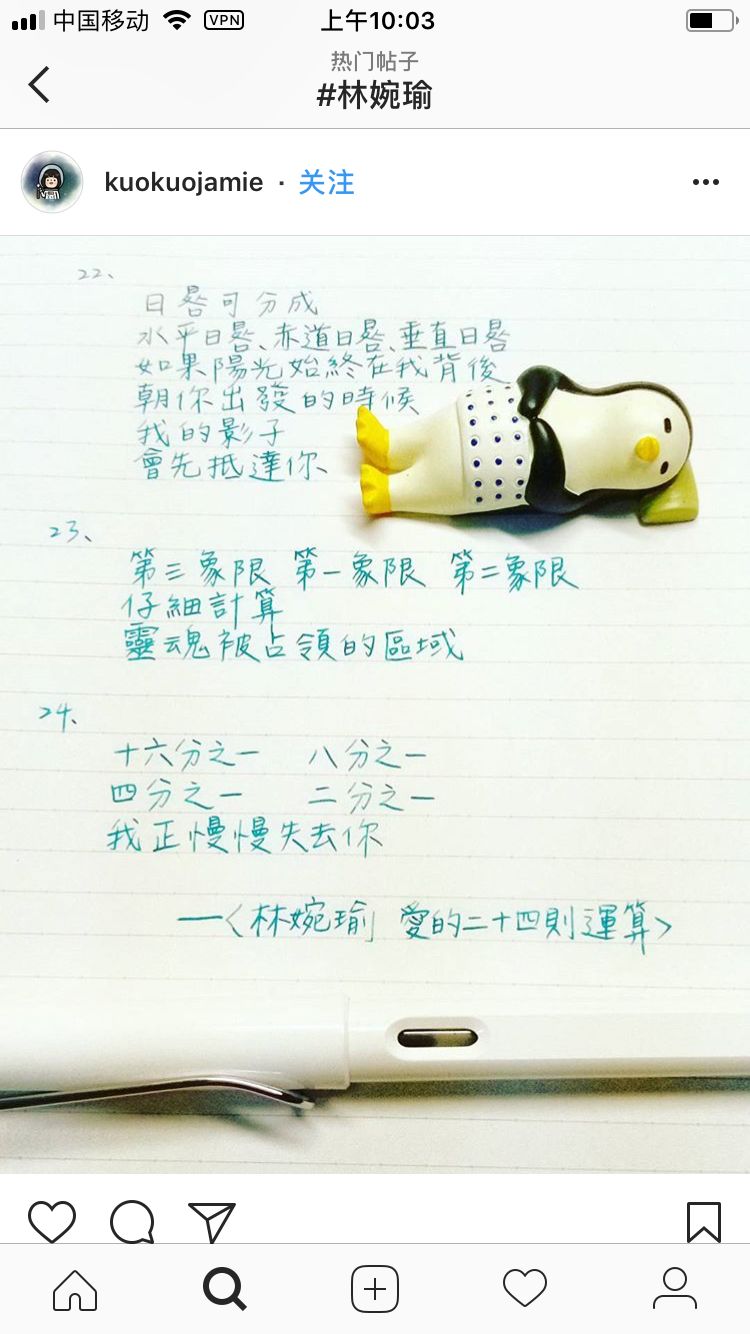 中国移动 VPN 上午10:03
热门帖子
#林婉瑜
kuokuojamie · 关注
22、
日晷可分成
水平日晷、赤道日晷、垂直日晷
如果陽光始終在我背後
朝你出發的時候
我的影子
會先抵達你、
23、
第三象限 第一象限 第二象限
仔細計算
靈魂被占領的區域
24、
十六分之一 八分之一
四分之一 二分之一
我正慢慢失去你
—〈林婉瑜｜愛的二十四則運算〉